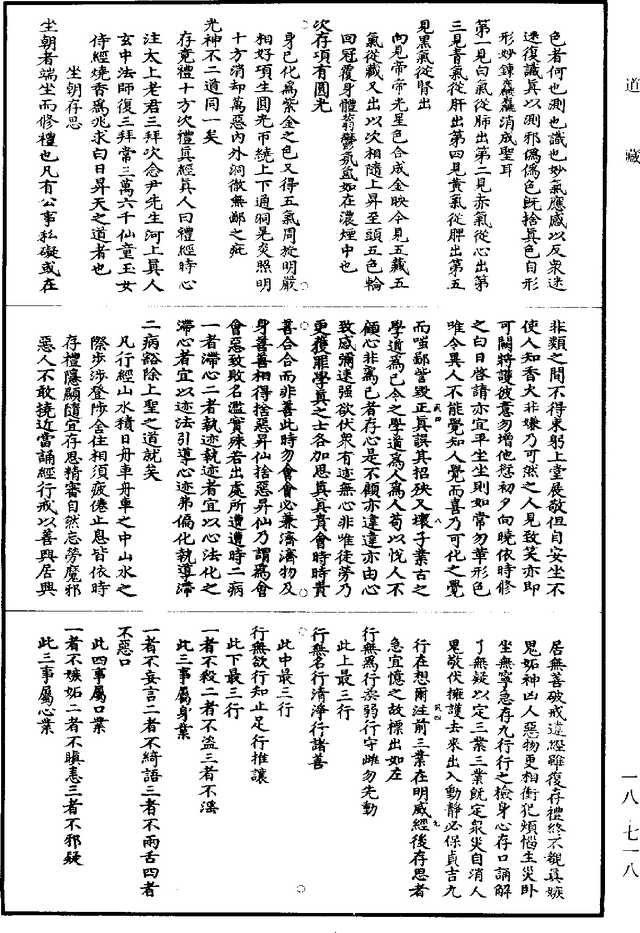 道藏
色者何也測也識也妙氣應感以反衆迷
迷復識真以測邪僞僞色旣捨真色自形
形妙鍊麤麤消成聖耳
第一見白氣從肺出第二見赤氣從心出第
三見青氣從肝出第四見黃氣從脾出第五
見黑氣從腎出
向見帝帝光星色合成金映今見五藏五
氣從藏又出以次相隨上昇至頭五色輪
囘冠覆身體蓊鬱氛氳如在濃煙中也
次存項有圓光
身已化爲紫金之色又得五氣周旋明嚴
相好項生圓光帀繞上下通洞晃奕照明
十方消却萬惡內外洞徹無鄙之疵
光神不二道同一矣
存竟禮十方次禮真經真人曰禮經時心
注太上老君三拜次念尹先生河上真人
玄中法師復三拜常三萬六千仙童玉女
侍經燒香爲兆求白日昇天之道者也
坐朝存思
坐朝者端坐而修禮也凡有公事私礙或在
非類之間不得束躬上堂展敬但自安坐不
使人知香火非嫌乃可然之人見致笑亦即
可闕將護彼意勿增他愆初夕向曉依時修
之白日啓請亦宜平坐坐則如常勿華形色
唯令異人不能覺知人覺而喜乃可化之覺
而嗤鄙訾毀正真誤其招殃又壞子業古之
學道爲己今之學道爲人爲人苟以悅人不
顧心非爲己者存心是不顧亦違違亦由心
致感彌速强欲伏衆有迹無心非唯徒勞乃
更獲罪學真之士各加思真真貴會時時貴
善合合而非善此時勿會會必兼濟濟物及
身善善相得捨惡昇仙捨惡昇仙乃謂爲會
會惡致敗名濫實殊若出處所遭遭時二病
一者滯心二者執迹執迹者宜以心法化之
滯心者宜以迹法引導心迹弟偏化執導滯
二病豁除上聖之道就矣
凡行經山水積日舟車舟車之中山水之
際步涉登陟金住相須疲倦止息皆依時
存禮隱顯隨宜存思精審自然忘勞魔邪
惡人不敢撓近當誦經行戒以善興居興
居無善破戒違經雖復存禮終不能真嫉
鬼妬神凶人惡物更相衝犯煩惱生災卧
坐無寧急存九行行之檢身心存口誦解
了無疑以定三業三業旣定衆災自消人
鬼敬伏擁護去來出入動靜必保貞吉九
行在想爾注前三業在明威經後存思者
急宜憶之故標出如左
行無爲行柔弱行守雌勿先動
此上最三行
行無名行清淨行諸善
此中最三行
行無欲行知止足行推讓
此下最三行
一者不殺二者不盜三者不淫
此三事屬身業
一者不妄言二者不綺語三者不兩舌四者
不惡口
此四事屬口業
一者不嫉妬二者不瞋恚三者不邪疑
此三事屬心業
一八·七一八